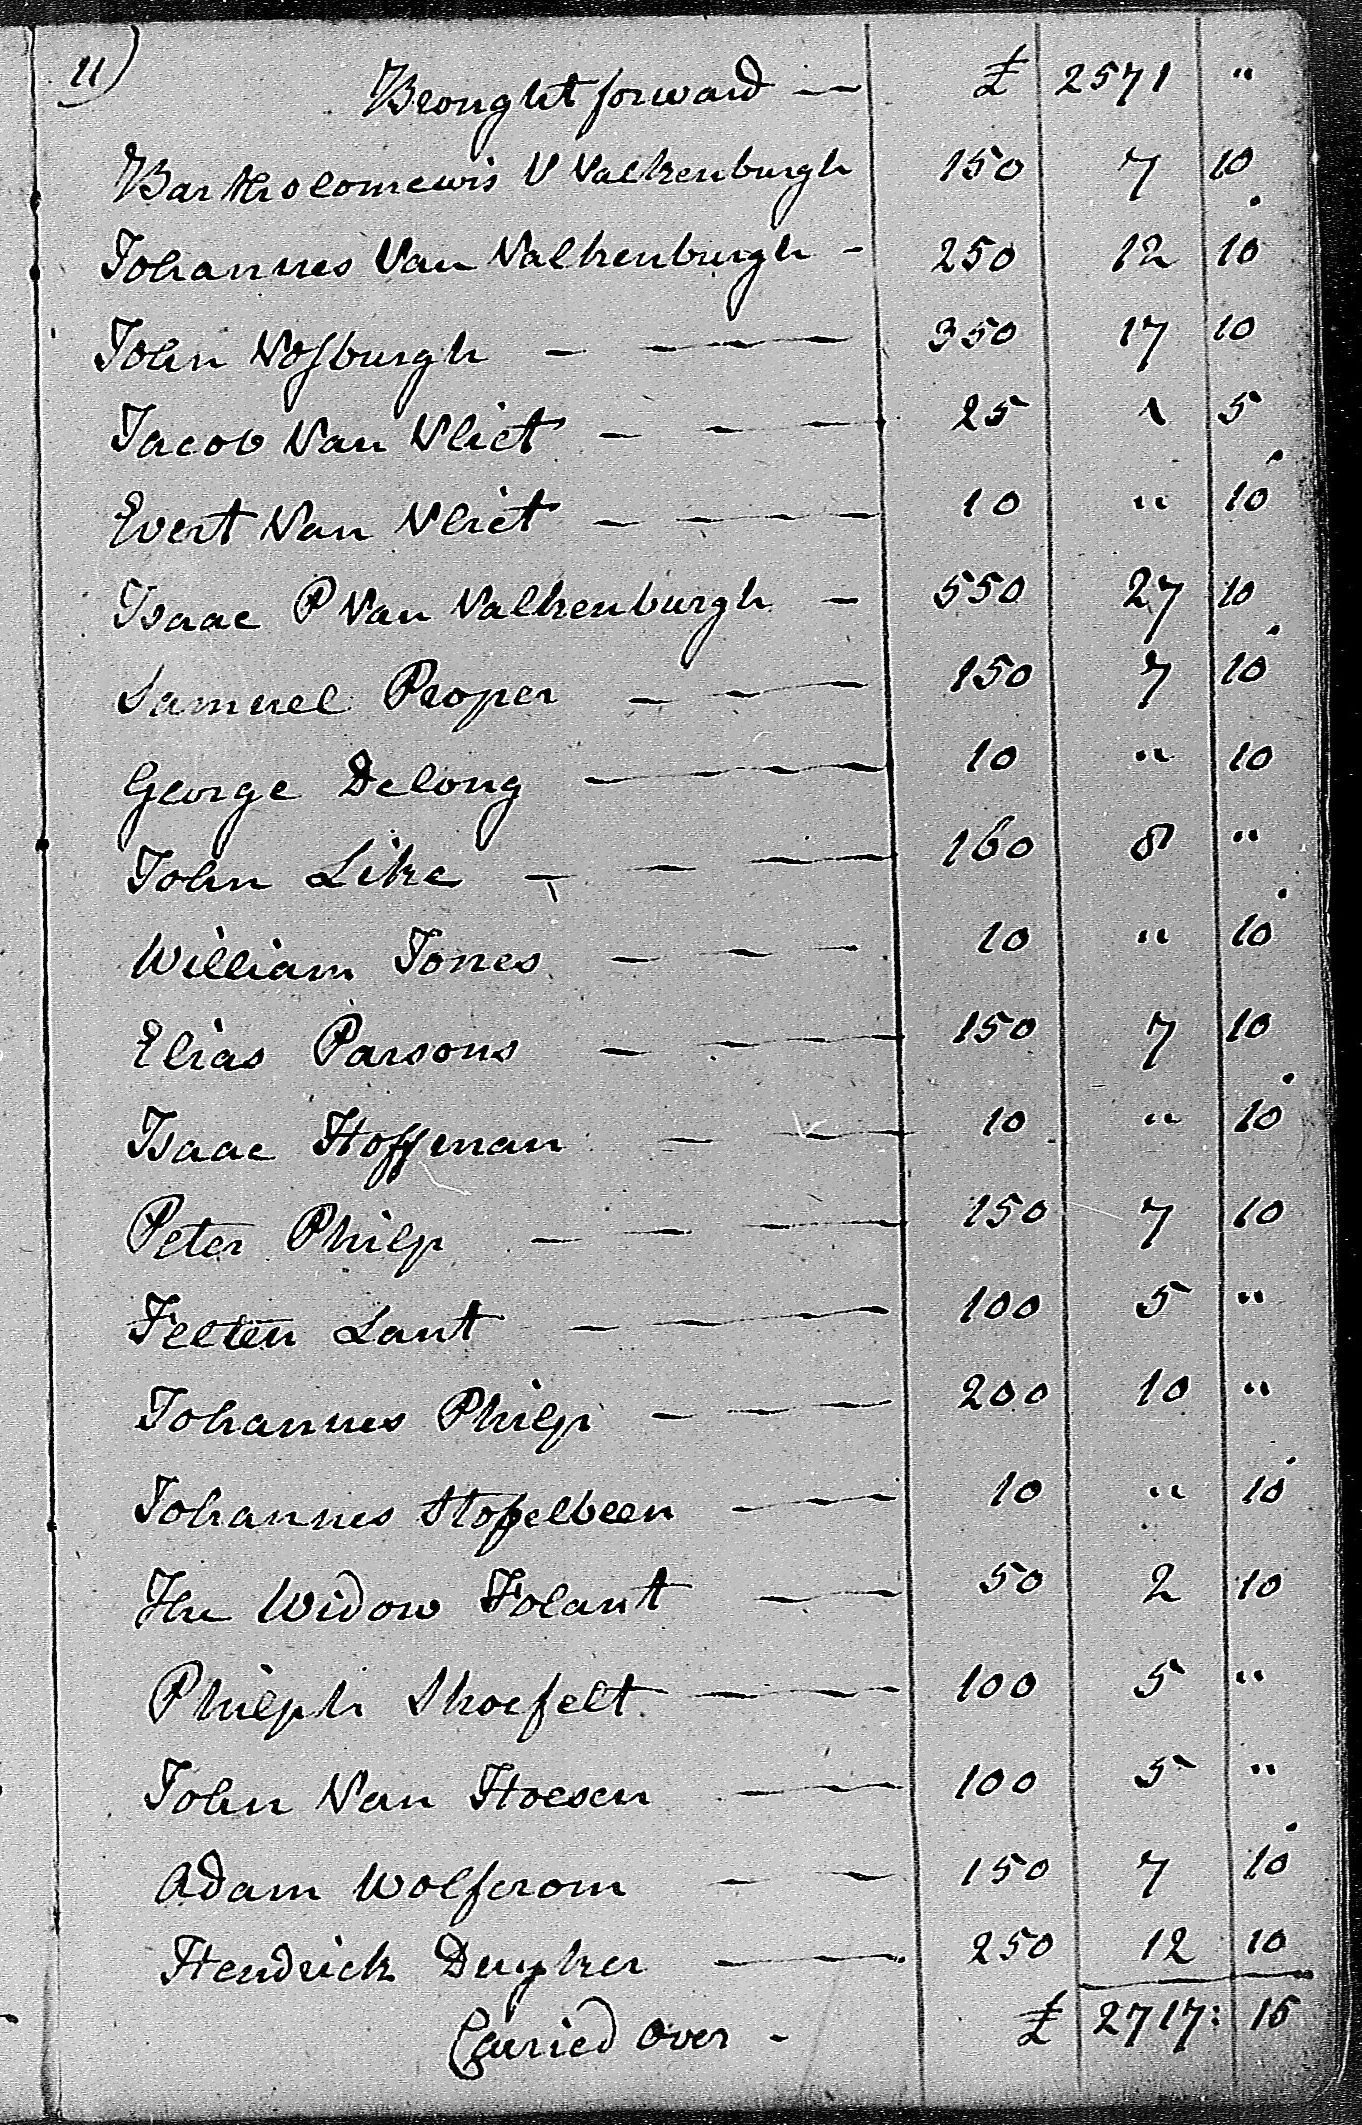 11)
Brought forward — £ 2571 "
Bartholomewis V Valkenburgh 150 7 10
Johannes Van Valkenburgh - 250 12 10
John Vosburgh — — — — 350 17 10
Jacob Van Vliet — — — 25 1 5
Evert Van Vliet — — — — 10 " 10
Isaac P Van Valkenburgh — 550 27 10
Samuel Proper — — — 150 7 10
George Delong — — — — 10 " 10
John Like — — — — 160 8 "
William Jones — — — 10 " 10
Elias Parsons — — — — 150 7 10
Isaac Hoffman — — — 10 " 10
Peter Philp — — — — 150 7 10
Felten Lant — — — — 100 5 "
Johannes Philip — — — 200 10 "
Johannes Stopelbeen — — — 10 " 10
The Widow Folant — — 50 2 10
Philiph Shoefelt — — — 100 5 "
John Van Hoesen — — — 100 5 "
Adam Wolfcrom — — 150 7 10
Hendrick Duyker — — — 250 12 10
Carried Over - £ 2717: 15